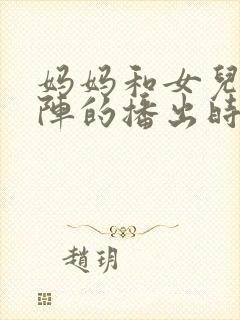 妈妈和女兒
陣的播出時
趙玥